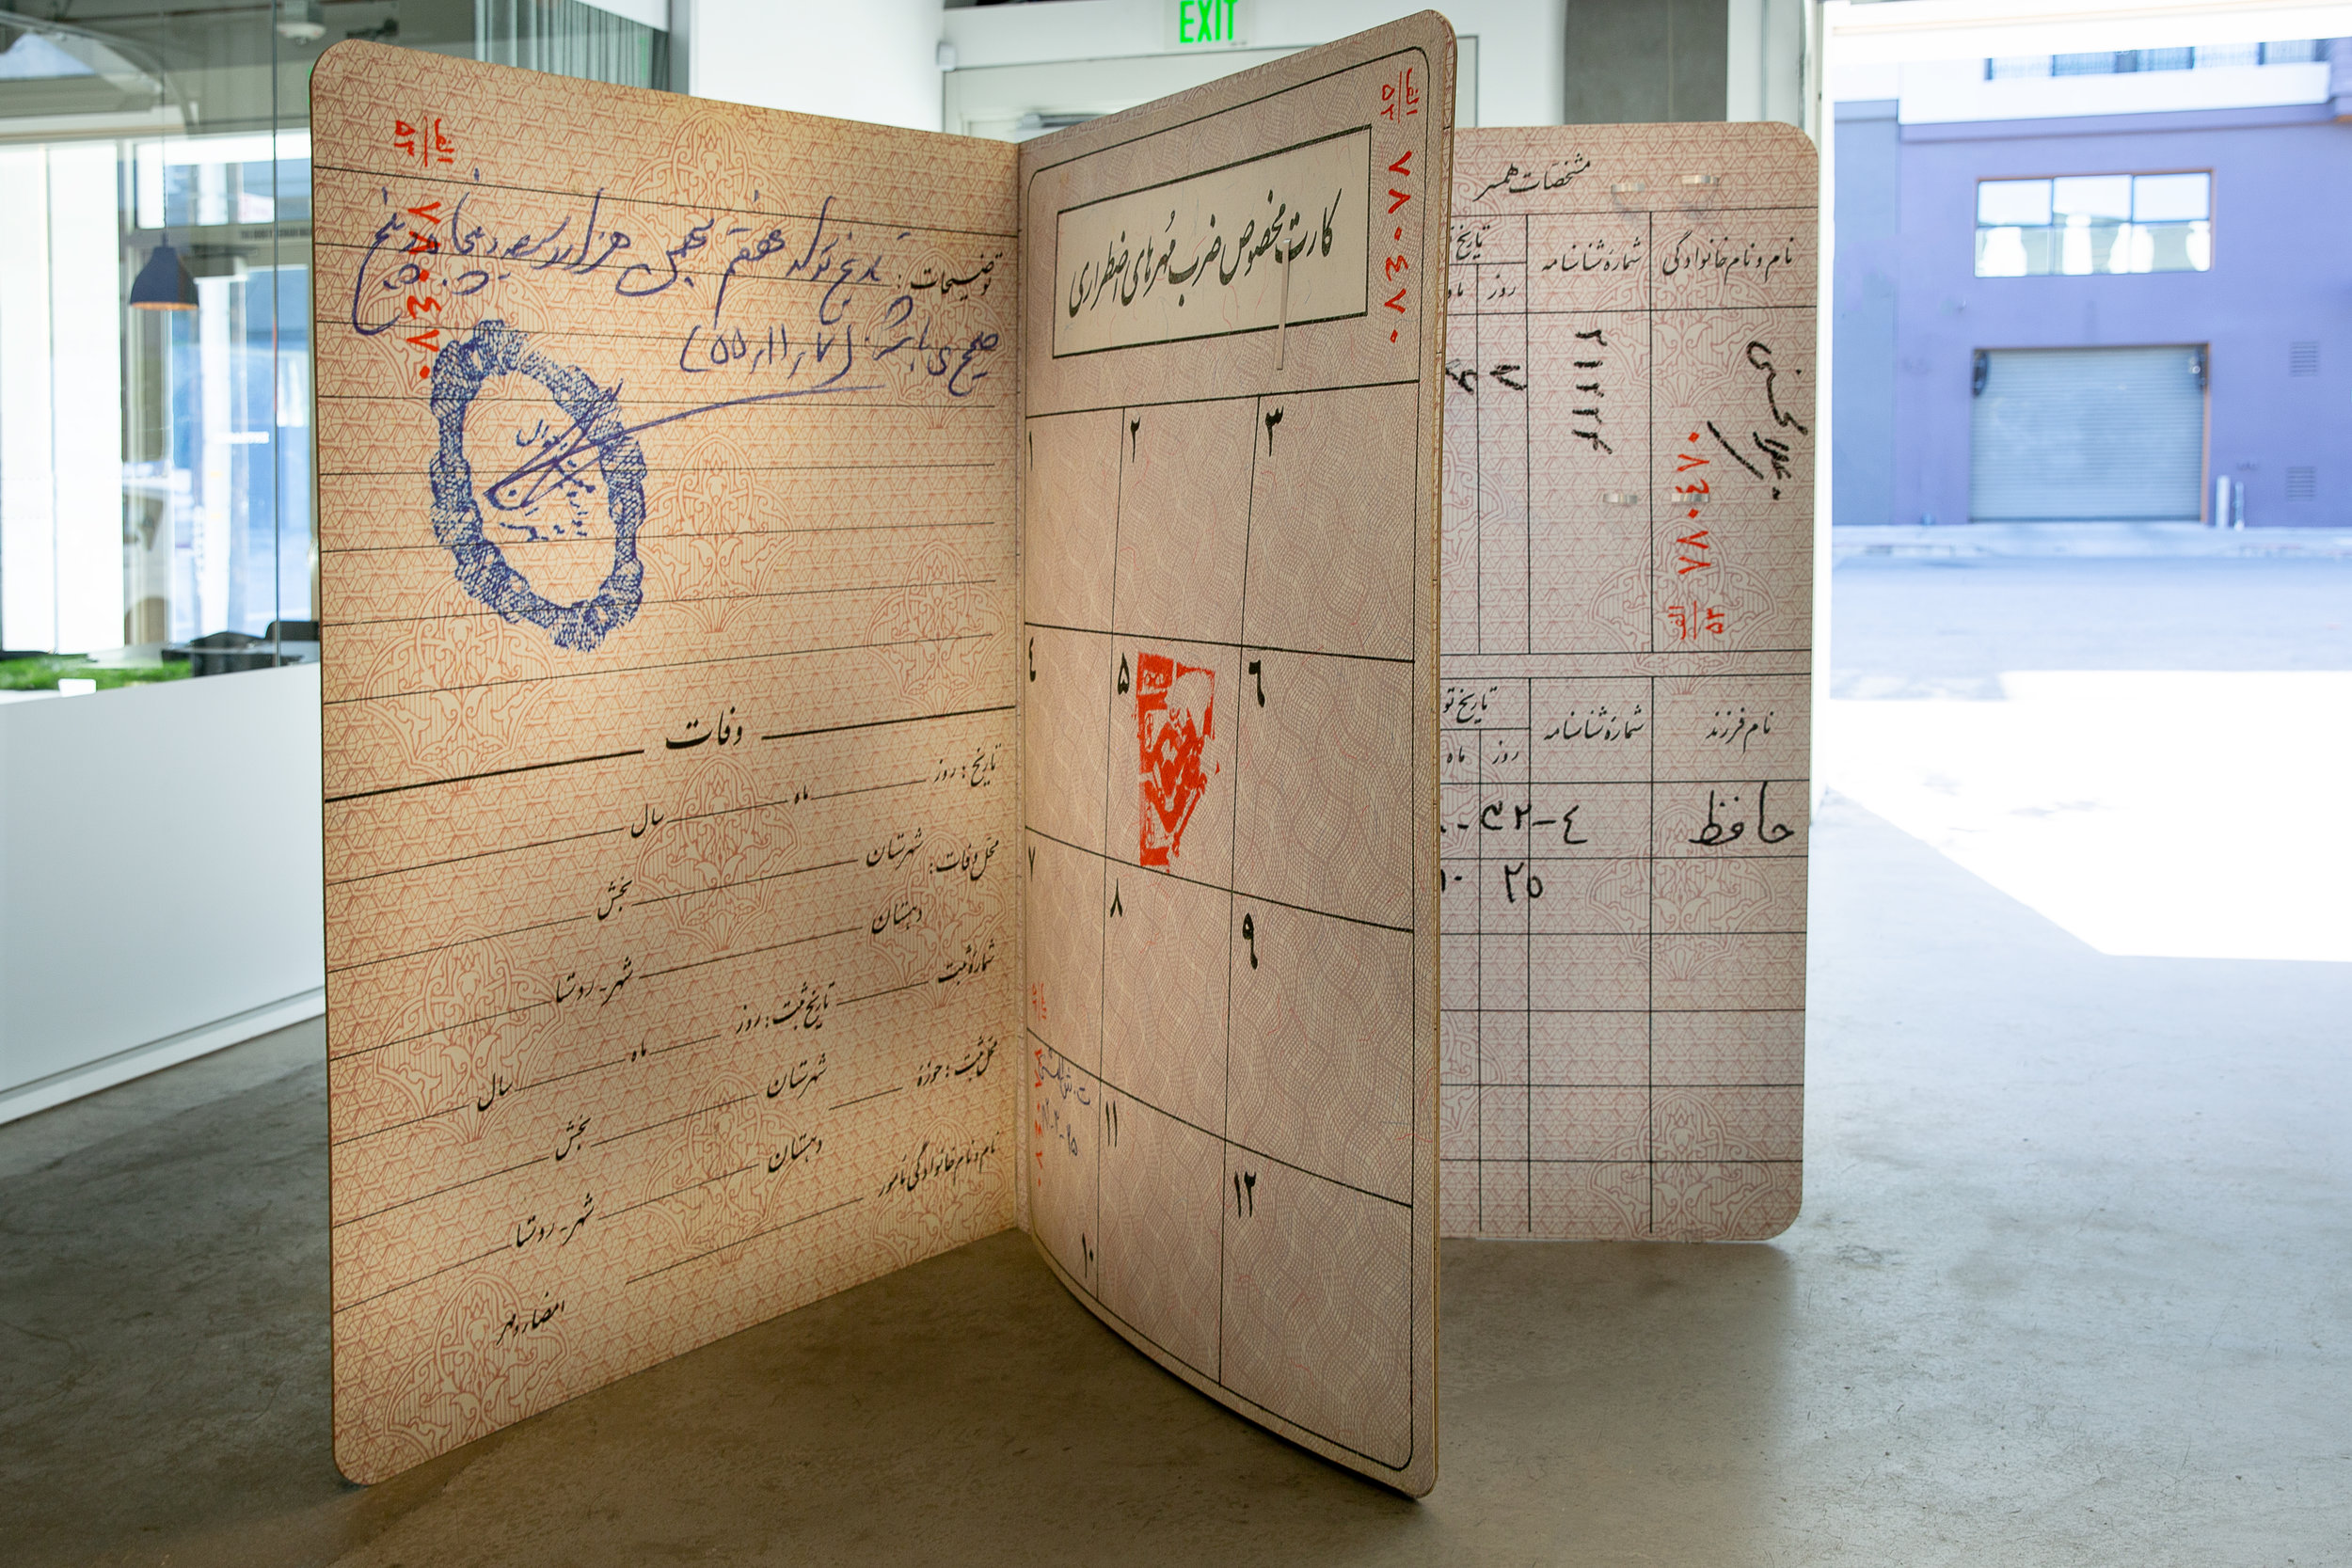 EXIT
الف
۵۳
۷۸۰۴۸۰
توضیحات: تاریخ تولد هفتم بهمن هزار و سیصد و پنجاه و پنج
صحیح می باشد. (۵۵٫۱۱٫۷)
وفات
تاریخ: روز ماه سال
محل وفات: شهرستان بخش
دهستان شهر - روستا
شماره ثبت تاریخ ثبت: روز ماه سال
محل ثبت: حوزه شهرستان بخش
دهستان شهر - روستا
نام و نام خانوادگی مأمور
امضاء و مهر
الف
۵۲
۷۸۰٤۷۰
کارت مخصوص ضرب مُهرهای اضطراری
۱ ۲ ۳
٤ ۵ ٦
۷ ۸ ۹
۱۰ ۱۱ ۱۲
مشخصات همسر
نام و نام خانوادگی شماره شناسنامه تاریخ
روز
۲۱۲۳۴ ۷
۷۸۰٤۷۰
الف
۵۲
نام فرزند شماره شناسنامه تاریخ تو
روز ماه
حافظ
۲۵